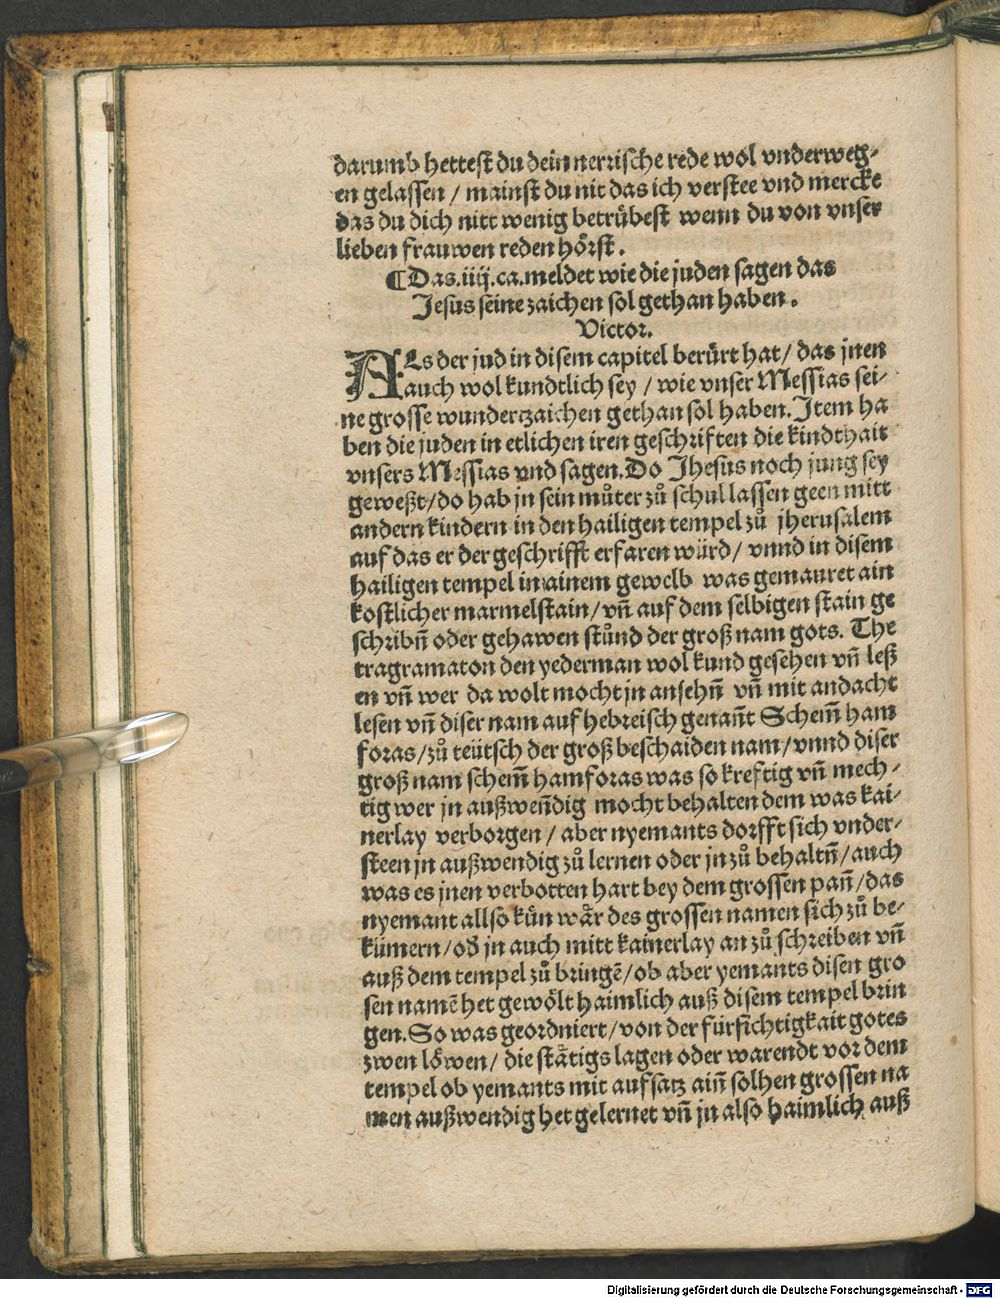 darumb hettest du dein nerrische rede wol vnderweg-
en gelassen / mainst du nit das ich verstee vnd mercke
das du dich nitt wenig betrübest wenn du von vnser
lieben frauwen reden hörst.
¶ Das.iiij.ca.meldet wie die juden sagen das
Jesus seine zaichen sol gethan haben.
Victor.
ALs der jud in disem capitel berürt hat / das jnen
auch wol kundtlich sey / wie vnser Messias sei-
ne grosse wundertzaichen gethan sol haben. Jtem ha
ben die juden in etlichen iren geschriften die kindthait
vnsers Messias vnd sagen. Do Jhesus noch jung sey
geweßt / do hab jn sein můter zů schul lassen geen mitt
andern kindern in den hailigen tempel zů jherusalem
auf das er der geschrifft erfaren würd / vnnd in disem
hailigen tempel in ainem gewelb was gemauret ain
kostlicher marmelstain / vn̄ auf dem selbigen stain ge
schribn̄ oder gehawen stůnd der groß nam gots. The
tragramaton den yederman wol kund gesehen vn̄ leß
en vn̄ wer da wolt mocht jn ansehn̄ vn̄ mit andacht
lesen vn̄ diser nam auf hebreisch genan̄t Schem̄ ham
foras / zů teütsch der groß beschaiden nam / vnnd diser
groß nam schem̄ hamforas was so kreftig vn̄ mech-
tig wer jn außwen̄dig mocht behalten dem was kai-
nerlay verborgen / aber nyemants dorfft sich vnder-
steen jn außwendig zů lernen oder jn zů behaltn̄ / auch
was es jnen verbotten hart bey dem grossen pan̄ / das
nyemant allso kün wär des grossen namen sich zů be-
kümern / oď jn auch mitt kainerlay an zů schreiben vn̄
auß dem tempel zů bringē / ob aber yemants disen gro
sen namē het gewölt haimlich auß disem tempel brin
gen. So was geordniert / von der fürsichtigkait gotes
zwen löwen / die stätigs lagen oder warendt vor dem
tempel ob yemants mit aufsatz ain̄ solhen grossen na
men außwendig het gelernet vn̄ jn also haimlich auß
Digitalisierung gefördert durch die Deutsche Forschungsgemeinschaft - DFG